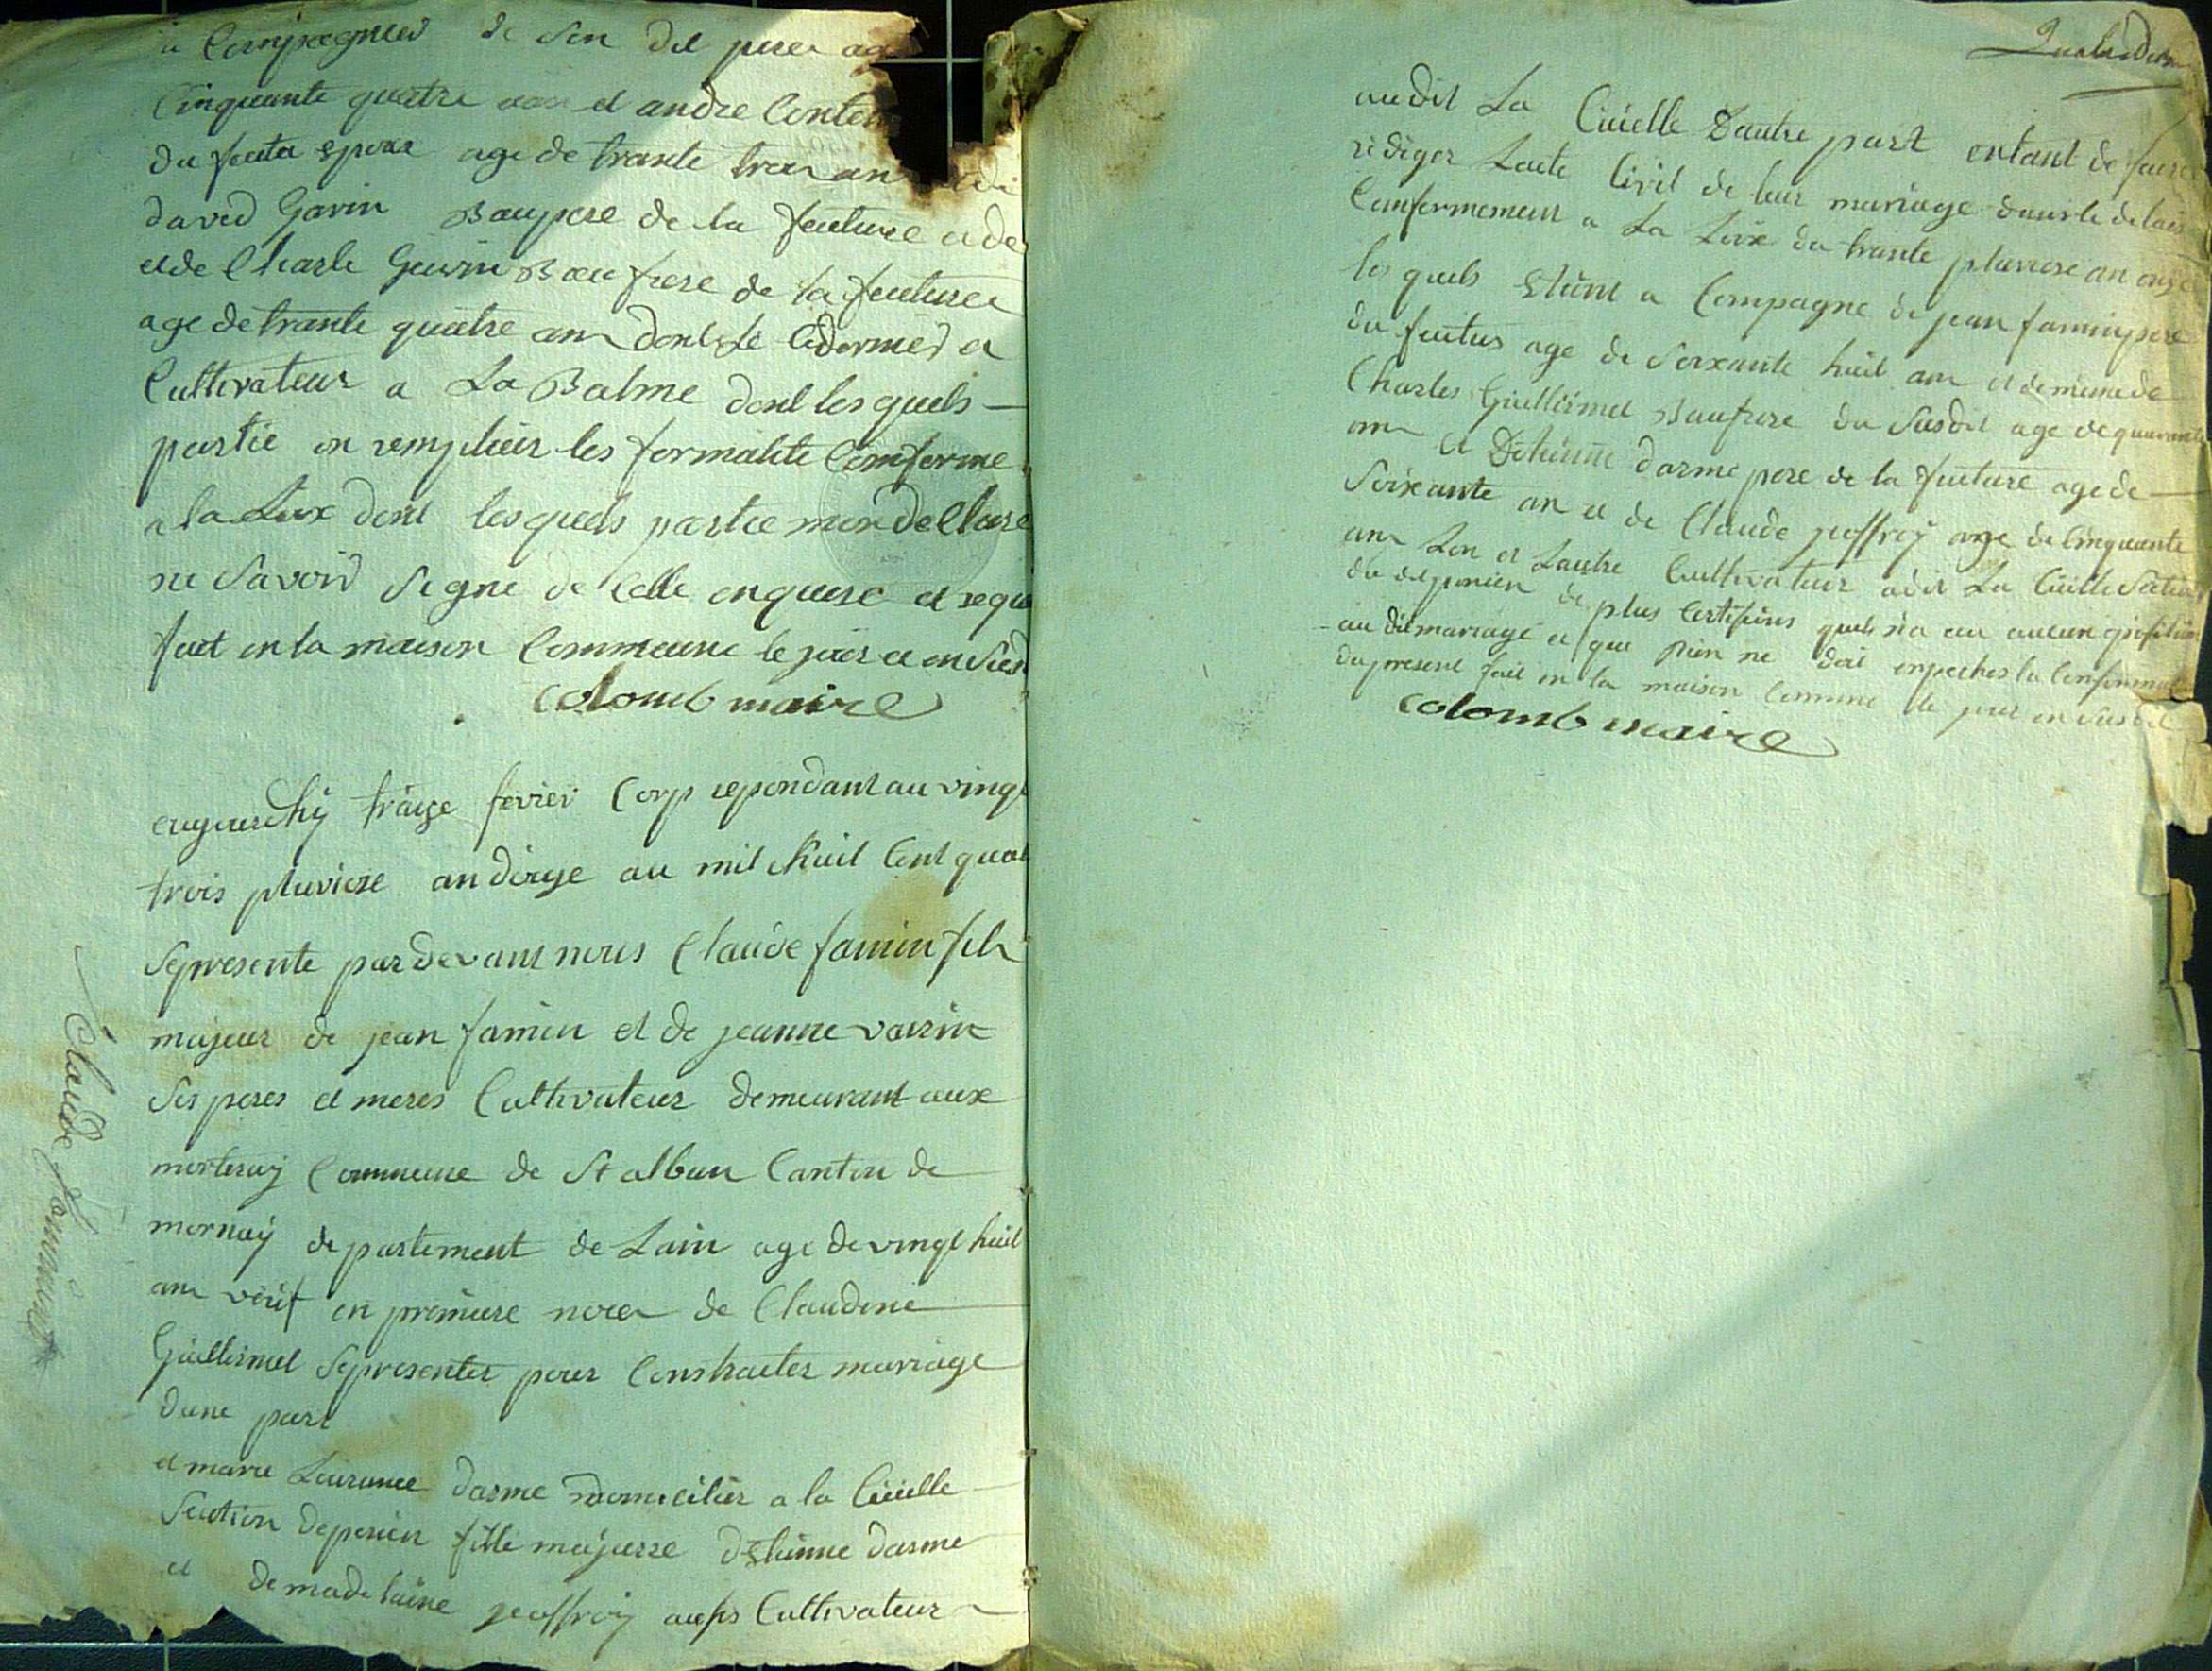 a Compagnied de son dit pere
Cinquante quatre ans et andre
du feuta epoux age de trante troi an
daved Gavin Baupere de la feuture
et de Charle Gavin Baufrere de la feuture
age de trante quatre an dont le
Cultivateur a La Balme dont les quels
partie on remplier les formalite Comforme
a la Loix dont lesquels partie mon declare
ne savoir signe de celle enquise et requi
fait en la maison Commeune le jour et an susd
Colomb maire
aujourdhÿ traize fevrier Corp repondant au vingt
trois pluviose an douze au mil huit Cent quat
sepresente pardevant nous Claude famin fils
majeur de jean famin et de jeanne voirin
ses peres et meres Cultivateur demeurant aux
morteraÿ Commune de St alban Canton de
mornaÿ departement de Lain age de vingt huit
an veuf en premiere noce de Claudine
Guillermet sepresenter pour Constracter mariage
dune part
et marie Laurance darme domicilier a la Cuielle
section deponien fille majeure detienne darme
et de madelaine geoffroy Cultivateur
Claude
audit La Cuielle dautre part entant de faire
rediger Lacte Civil de leur mariage dans le delais
Comformement a La Loix du trante pluviose an onze
les quels etant a Compagne de jean famin pere
du feutur age de soixante huit an et de meme de
Charles Guillermet Baufrere du susdit age de quarante
an et detienne darme pere de la feuture age de
soixante an et de Claude geoffroy age de Cinquante
an Lun et Lautre Cultivateur adit La Cuielle section
du dit ponien de plus Certifions quil nia eu aucun opposition
au dit mariage et que rien ne doit enpecher la Confirmation
du present fait en la maison Commune le jour an susdit
Colomb maire